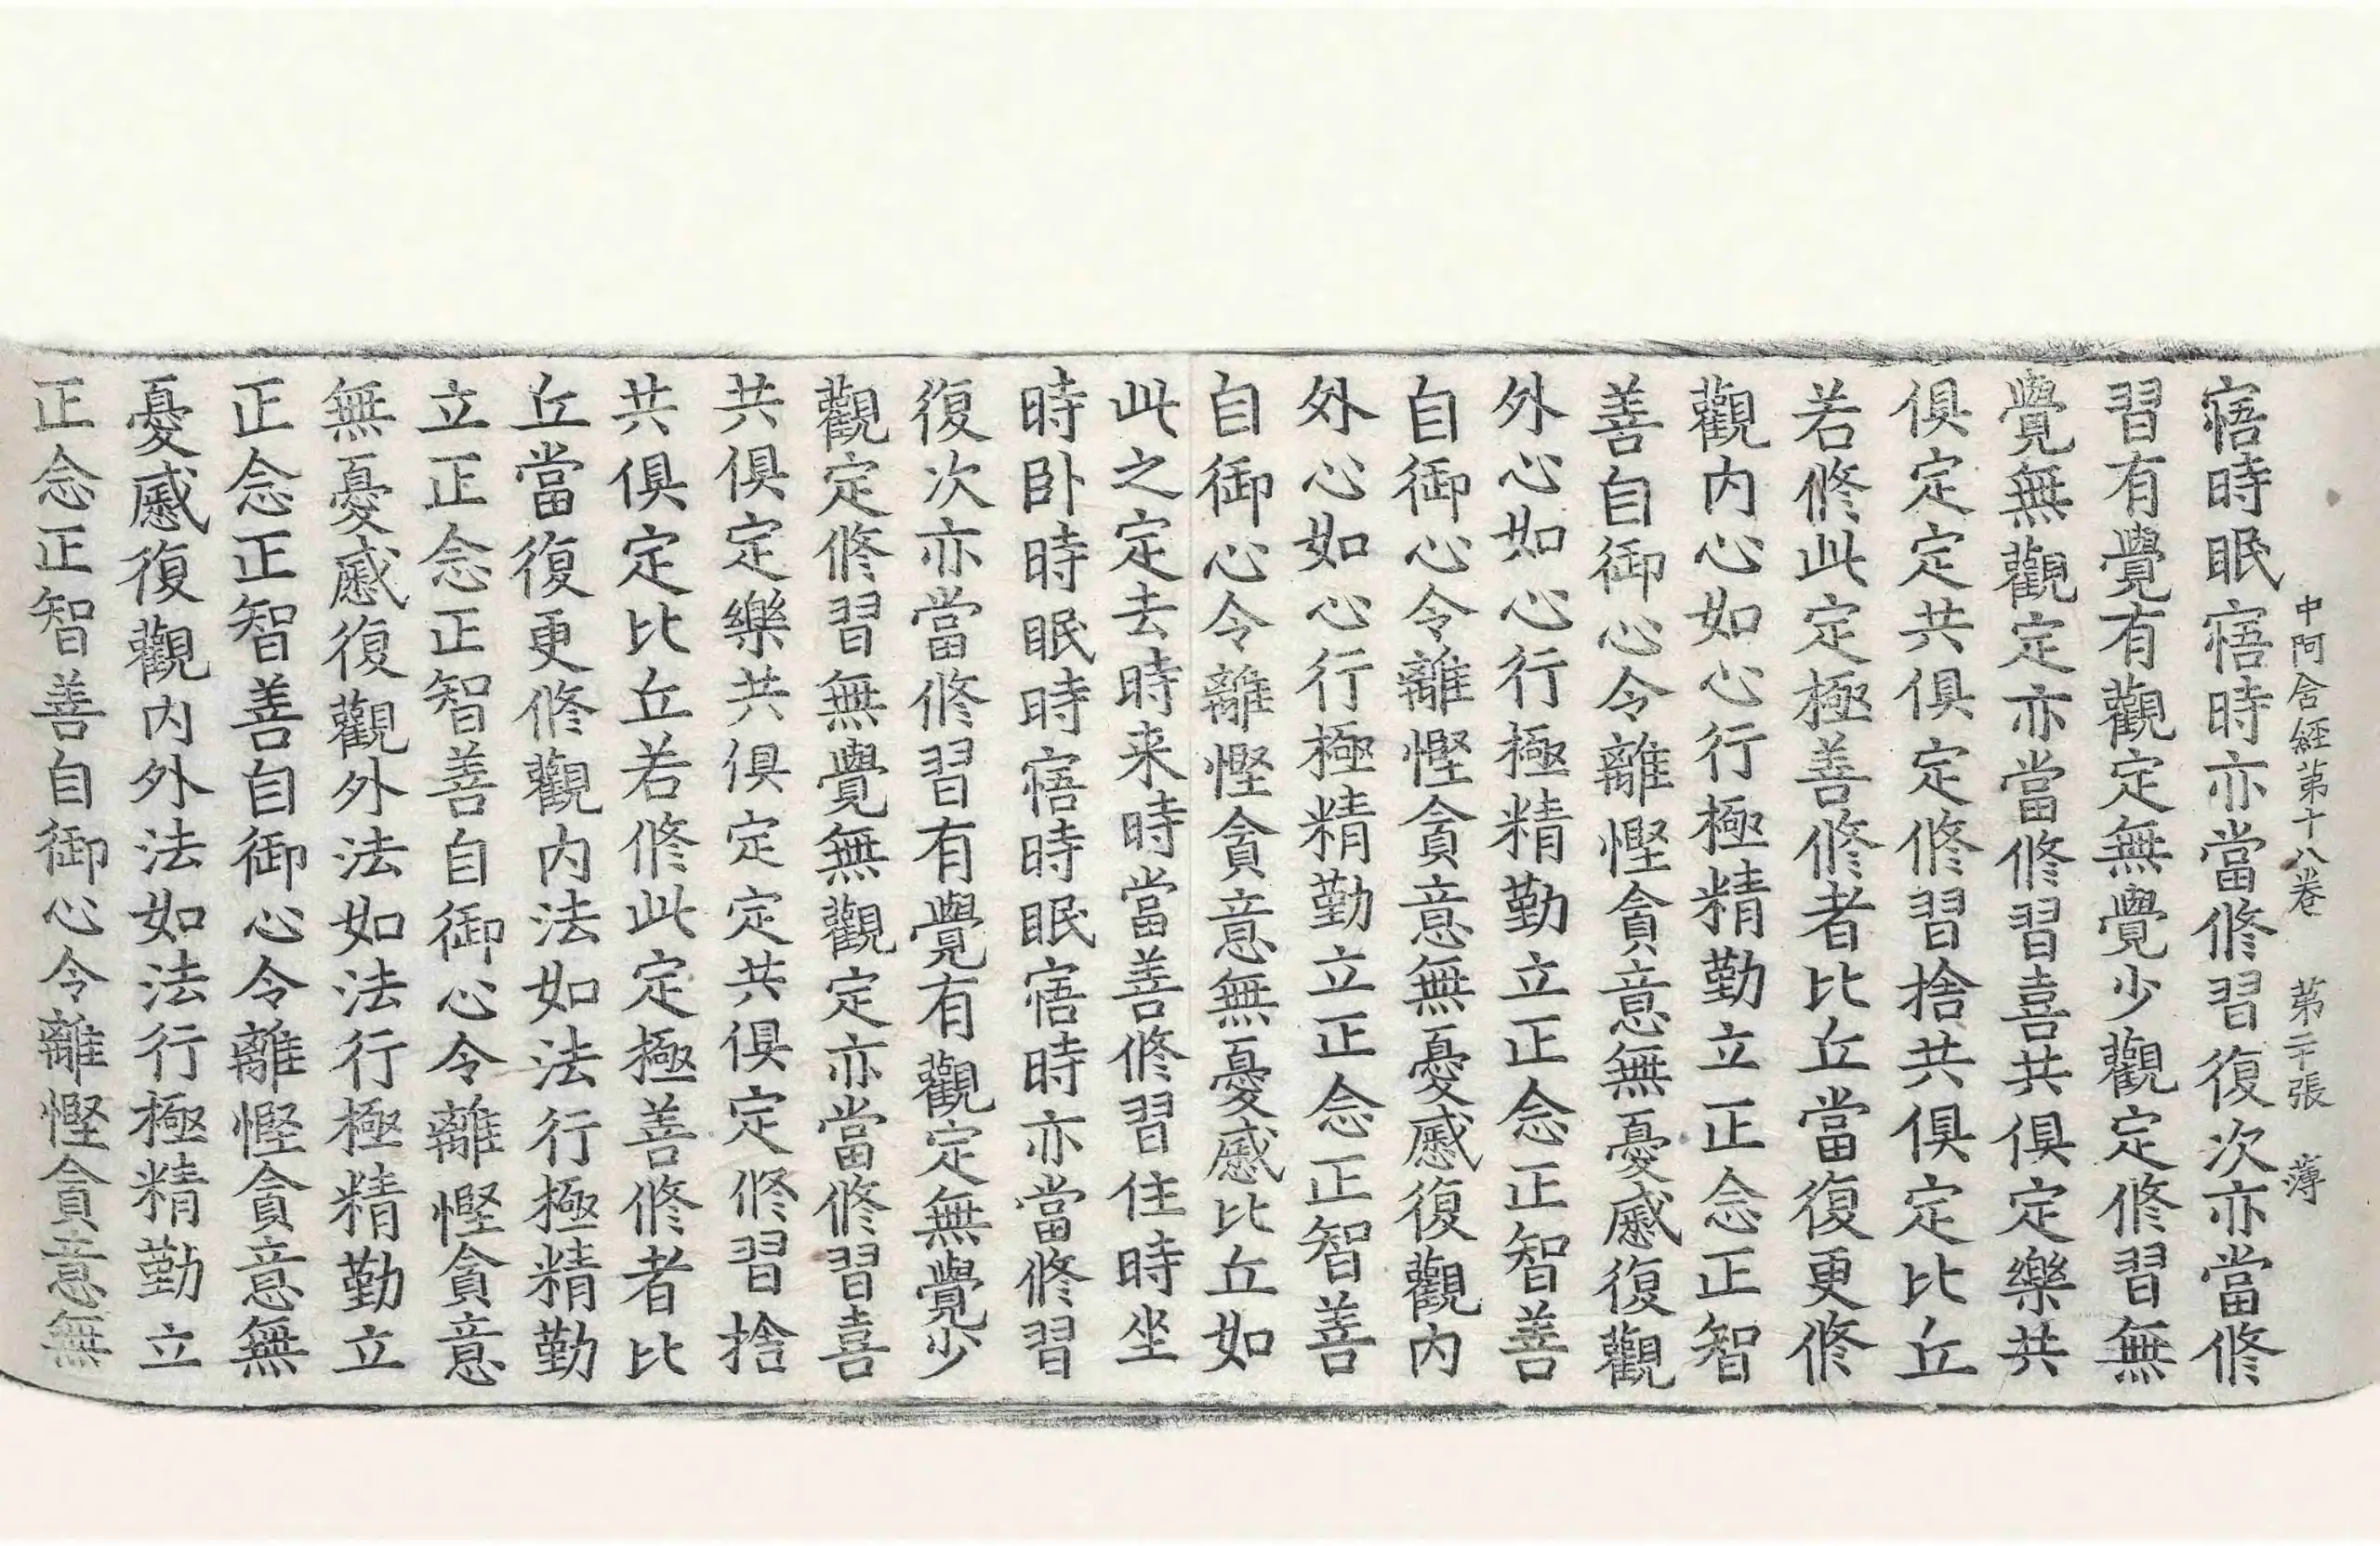 中阿含経第十八卷 第二十張 薄
寤時眠寤時亦當修習復次亦當修
習有覺有觀定無覺少觀定修習無
覺無觀定亦當修習喜共俱定樂共
俱定定共俱定修習捨共俱定比丘
若修此定極善修者比丘當復更修
觀内心如心行極精勤立正念正智
善自御心令離慳貪意無憂慼復觀
外心如心行極精勤立正念正智善
自御心令離慳貪意無憂慼復觀内
外心如心行極精勤立正念正智善
自御心令離慳貪意無憂慼比丘如
此之定去時来時當善修習住時坐
時卧時眠時寤時眠寤時亦當修習
復次亦當修習有覺有觀定無覺少
觀定修習無覺無觀定亦當修習喜
共俱定樂共俱定定共俱定修習捨
共俱定比丘若修此定極善修者比
丘當復更修觀内法如法行極精勤
立正念正智善自御心令離慳貪意
無憂慼復觀外法如法行極精勤立
正念正智善自御心令離慳貪意無
憂慼復觀内外法如法行極精勤立
正念正智善自御心令離慳貪意無